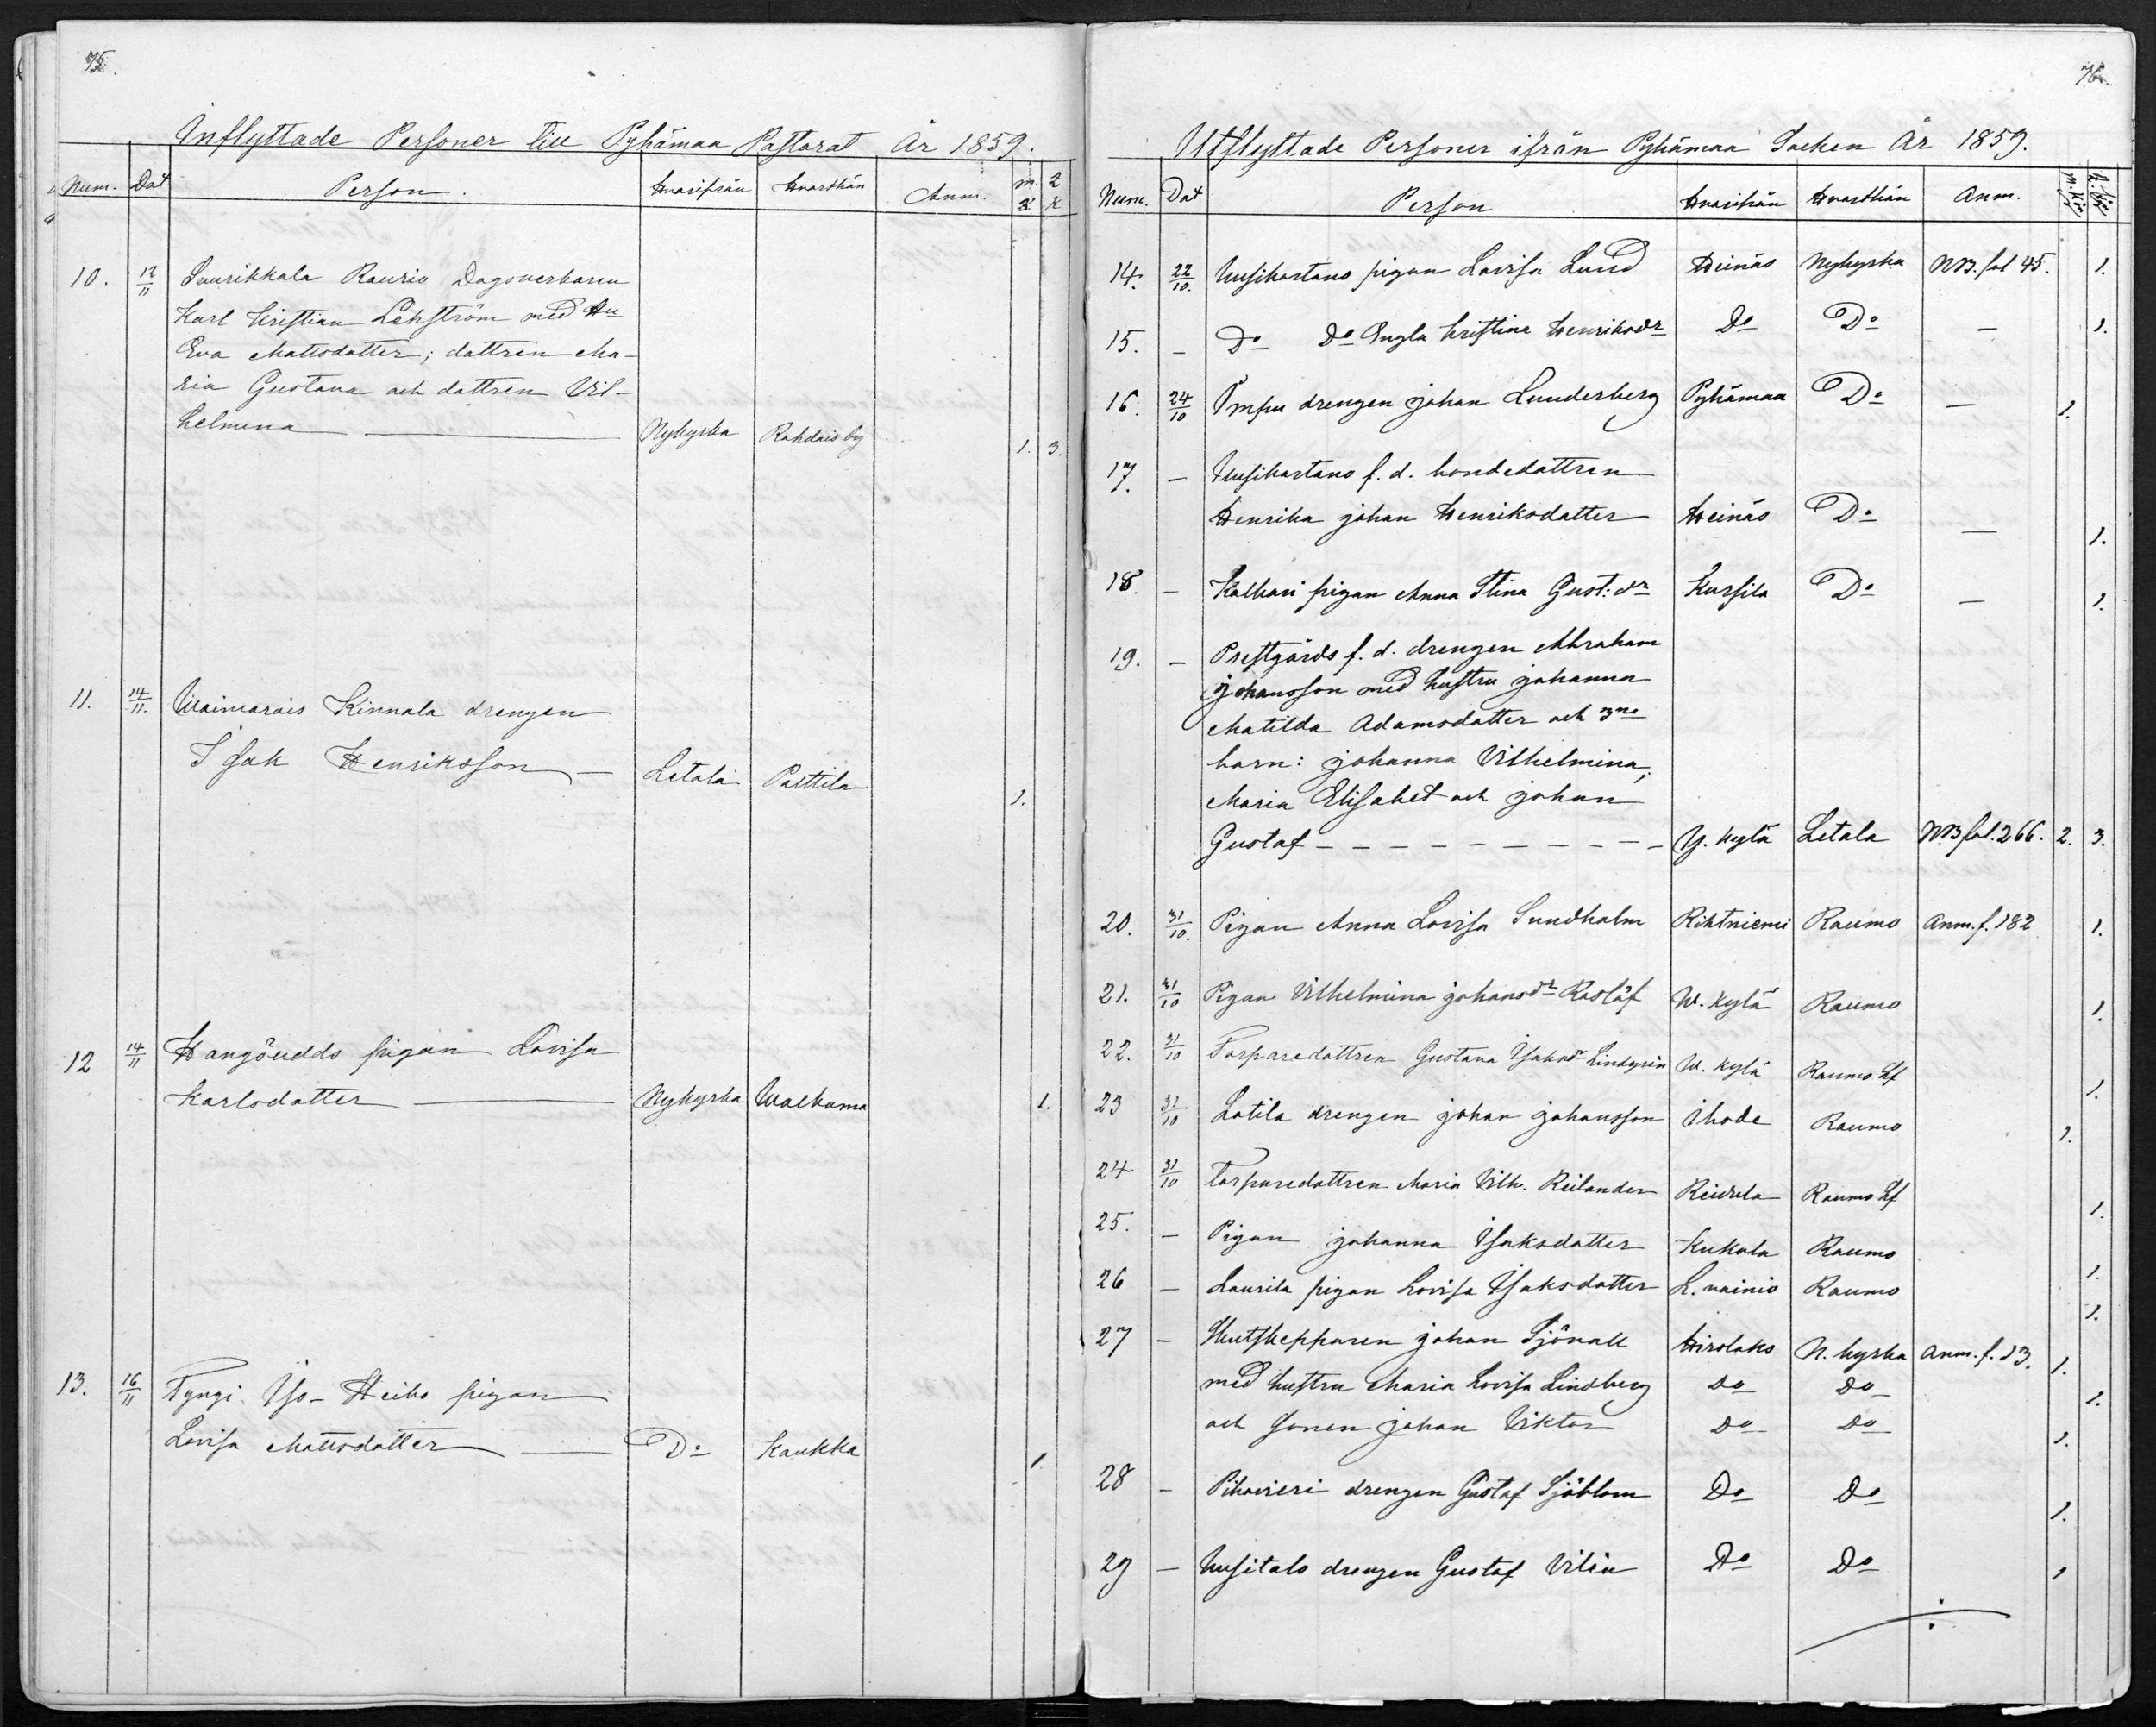 75.
Inflyttade Personer till Pyhämaa Pastorat År 1859.
Num. Dat Person. Hvarifrån Hvarthän Anm. m. k. q k
10. 12/11 Suurikkala Raurio Dagsverkaren
Karl Kristian Lekström med Hu
Eva Mattsdotter; dottren Ma-
ria Gustava och dottren Vil-
helmina Nykyrka Rohdais by 1. 3.
11. 14/11. Waimarais Kinnala drengen
Isak Henriksson Letala Pattila 1.
12 14/11 Hangöudds pigan Lovisa
Karlsdotter Nykyrka Walkama 1.
13. 16/11 Tyngi Yso-Heiko pigan
Lovisa Mattsdotter Do Kaukka 1
76.
Utflyttade Personer ifrån Pyhämaa Socken År 1859.
Num. Dat Person Hvarifrån Hvarthän Anm. m. kön q. kön
14. 22/10. Uusikartano pigan Lovisa Lund Heinäs Nykyrka NB. fol 45. 1.
15. – Do Do Engla Kristina Henriksdr Do Do – 1.
16. 24/10 Ämpu drengen Johan Lunderberg Pyhämaa Do – 1.
17. – Uusikartano f. d. bondedottren
Henrika Johan Henriksdotter Heinäs Do – 1.
18. – Kalhari pigan Anna Stina Gust: dr Kursila Do – 1.
19. – Prestgårds f. d. drengen Abraham
Johansson med hustru Johanna
Matilda Adamsdotter och 3ne
barn: Johanna Vilhelmina;
Maria Elisabet och Johan
Gustaf – – – – – – – – – – Y. kylä Letala NB fol. 266. 2. 3.
20. 31/10. Pigan Anna Lovisa Sundholm Rihtniemi Raumo Anm. f. 182 1.
21. 31/10 Pigan Vilhelmina Johansdr Roslöf W. kylä Raumo 1.
22. 31/10 Torparedottren Gustava Isaksdr Lindgrén W. kylä Raumo Lf 1.
23 31/10 Lotila drengen Johan Johansson Ihode Raumo 1.
24 31/10 Torparedottren Maria Vilh. Reilander Reivula Raumo Lf 1.
25. – Pigan Johanna Isaksdotter Kukola Raumo 1.
26 – Laurila pigan Lovisa Isaksdotter L. vainio Raumo 1.
27 – Skutskepparen Johan Sjövall Hirslaks N. kyrka Anm. f. 13. 1.
med hustru Maria Lovisa Lindberg Do Do 1.
och sonen Johan Viktor Do Do 1.
28 – Pihavieri drengen Gustaf Sjöblom Do Do 1.
29 – Uusitalo drengen Gustaf Vilén Do Do 1